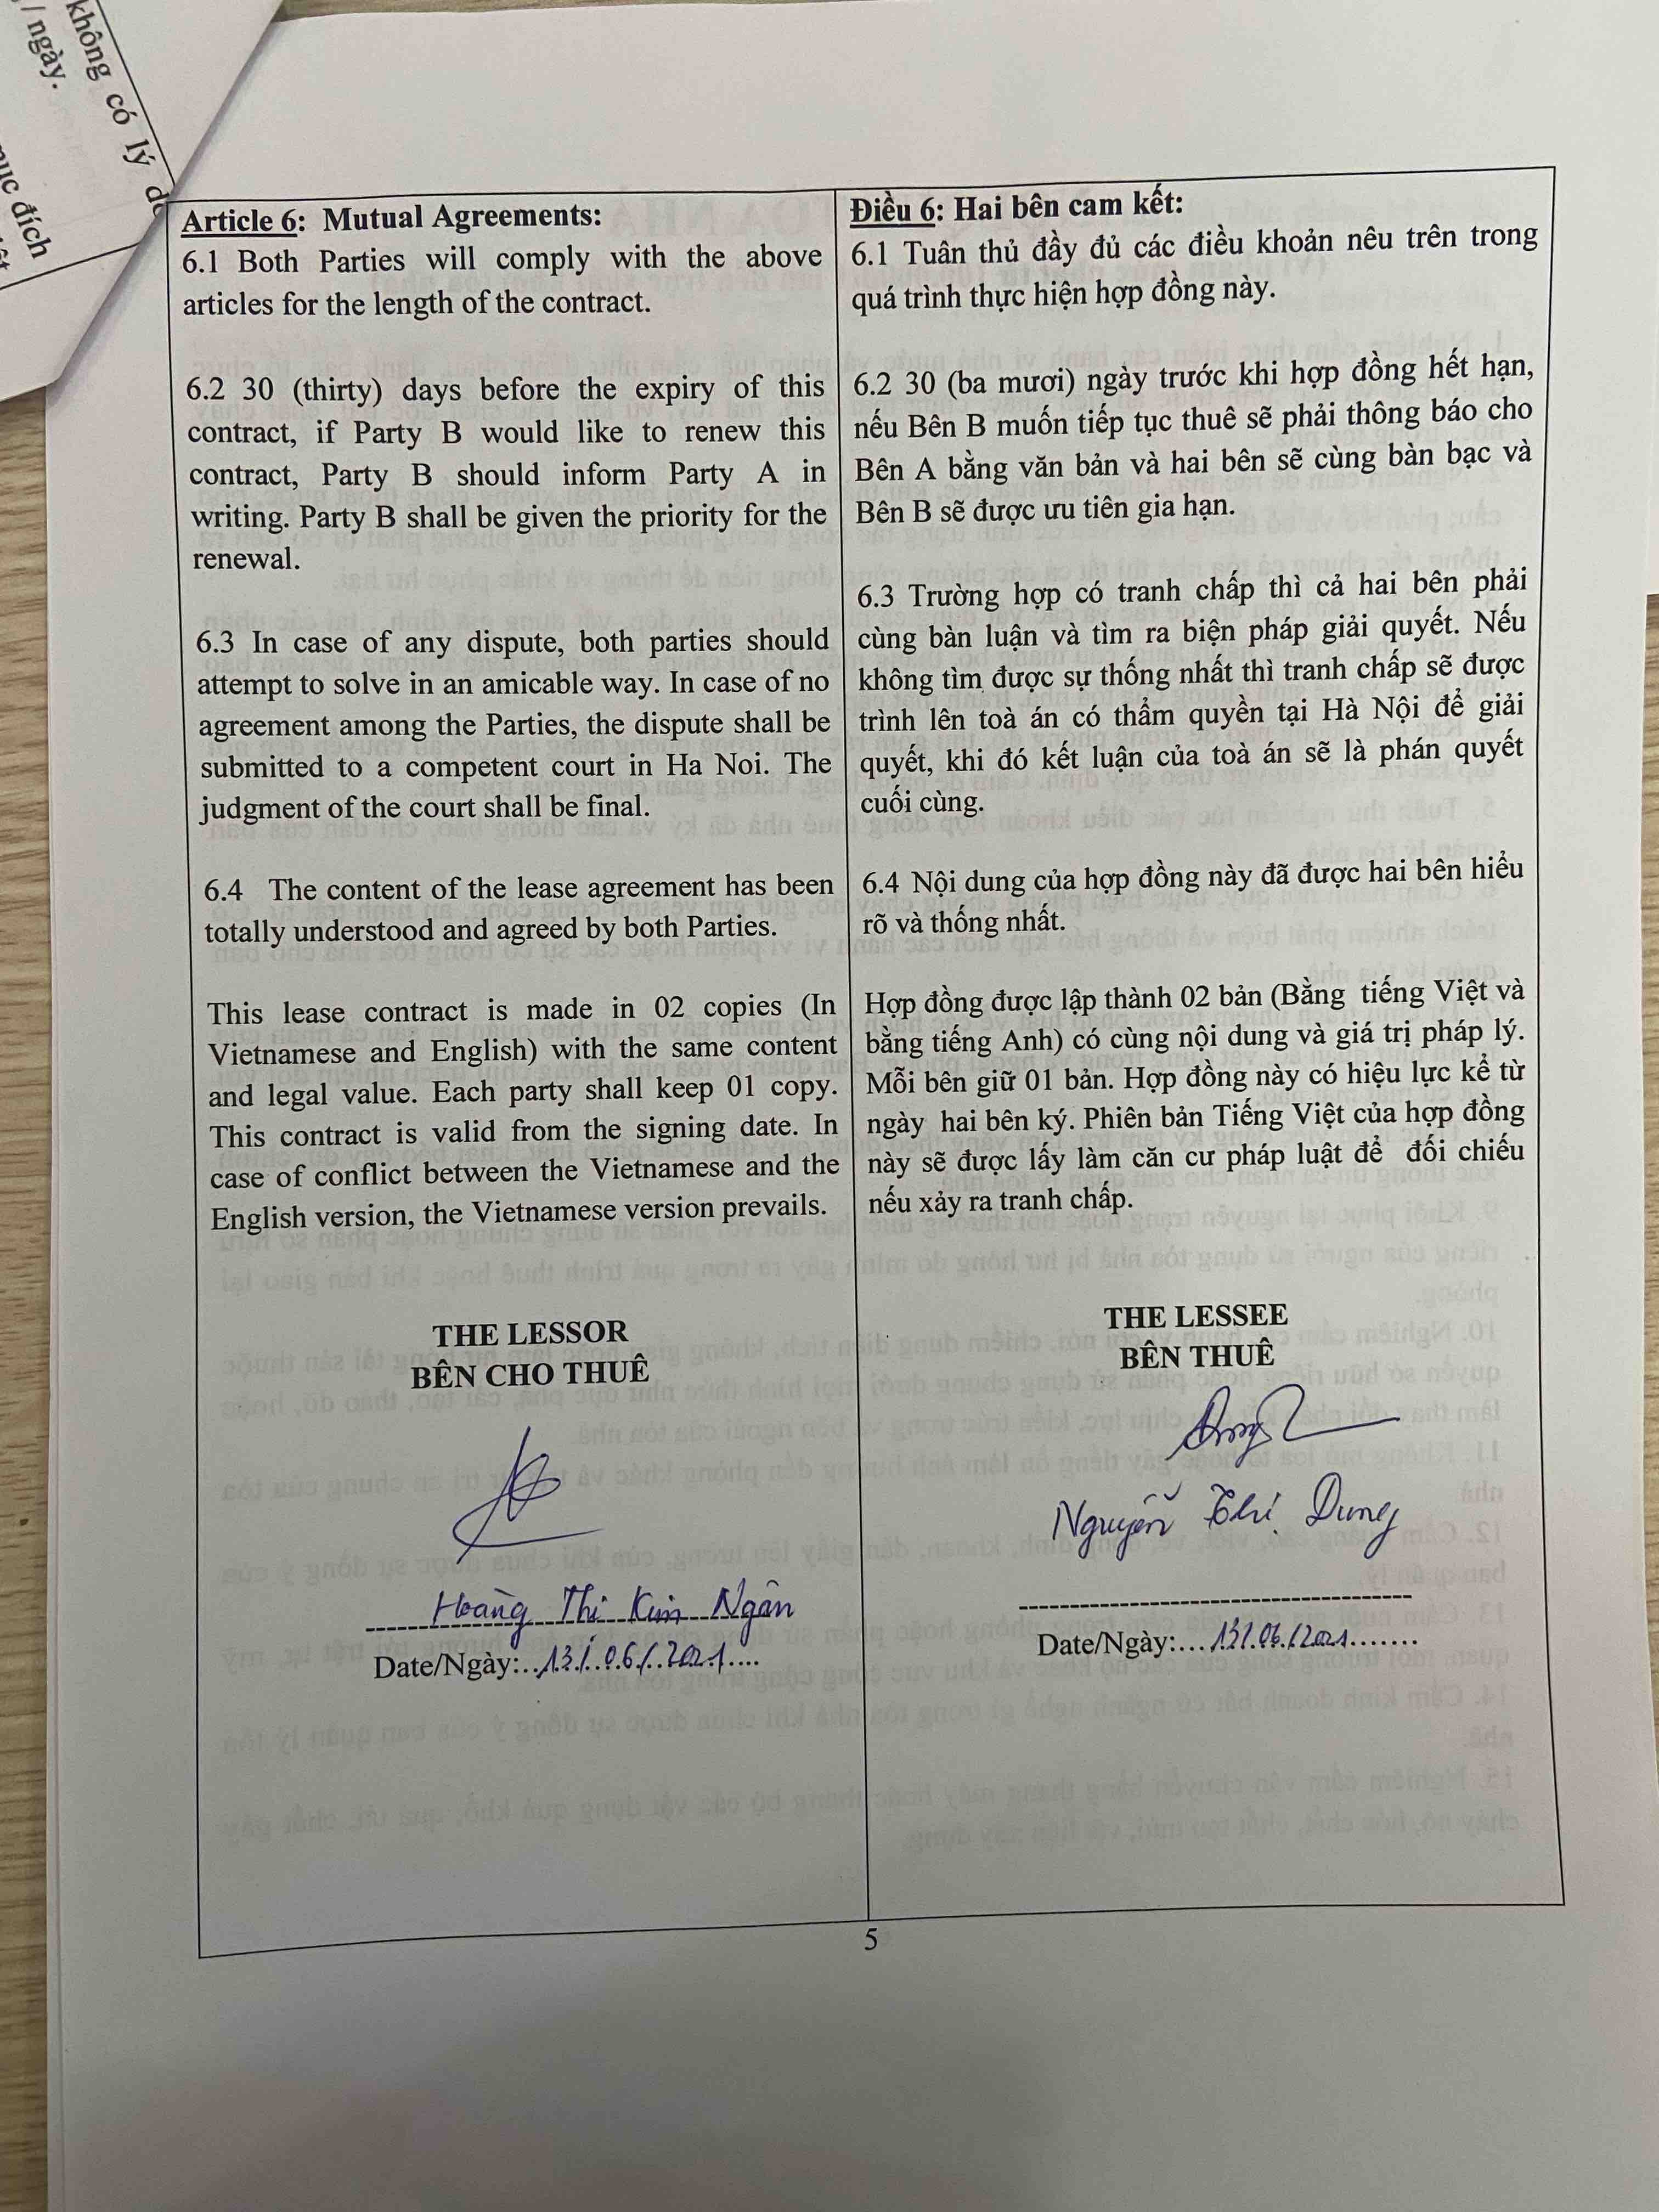 không có lý
/ ngày.
đích
Article 6: Mutual Agreements:
6.1 Both Parties will comply with the above
articles for the length of the contract.
6.2 30 (thirty) days before the expiry of this
contract, if Party B would like to renew this
contract, Party B should inform Party A in
writing. Party B shall be given the priority for the
renewal.
6.3 In case of any dispute, both parties should
attempt to solve in an amicable way. In case of no
agreement among the Parties, the dispute shall be
submitted to a competent court in Ha Noi. The
judgment of the court shall be final.
6.4 The content of the lease agreement has been
totally understood and agreed by both Parties.
This lease contract is made in 02 copies (In
Vietnamese and English) with the same content
and legal value. Each party shall keep 01 copy.
This contract is valid from the signing date. In
case of conflict between the Vietnamese and the
English version, the Vietnamese version prevails.
THE LESSOR
BÊN CHO THUÊ
Hoàng Thị Kim Ngân
Date/Ngày:...13./.06./.2021....
Điều 6: Hai bên cam kết:
6.1 Tuân thủ đầy đủ các điều khoản nêu trên trong
quá trình thực hiện hợp đồng này.
6.2 30 (ba mươi) ngày trước khi hợp đồng hết hạn,
nếu Bên B muốn tiếp tục thuê sẽ phải thông báo cho
Bên A bằng văn bản và hai bên sẽ cùng bàn bạc và
Bên B sẽ được ưu tiên gia hạn.
6.3 Trường hợp có tranh chấp thì cả hai bên phải
cùng bàn luận và tìm ra biện pháp giải quyết. Nếu
không tìm được sự thống nhất thì tranh chấp sẽ được
trình lên toà án có thẩm quyền tại Hà Nội để giải
quyết, khi đó kết luận của toà án sẽ là phán quyết
cuối cùng.
6.4 Nội dung của hợp đồng này đã được hai bên hiểu
rõ và thống nhất.
Hợp đồng được lập thành 02 bản (Bằng tiếng Việt và
bằng tiếng Anh) có cùng nội dung và giá trị pháp lý.
Mỗi bên giữ 01 bản. Hợp đồng này có hiệu lực kể từ
ngày hai bên ký. Phiên bản Tiếng Việt của hợp đồng
này sẽ được lấy làm căn cư pháp luật để đối chiếu
nếu xảy ra tranh chấp.
THE LESSEE
BÊN THUÊ
Nguyễn Thị Dung
Date/Ngày:...13/.06./2021.......
5